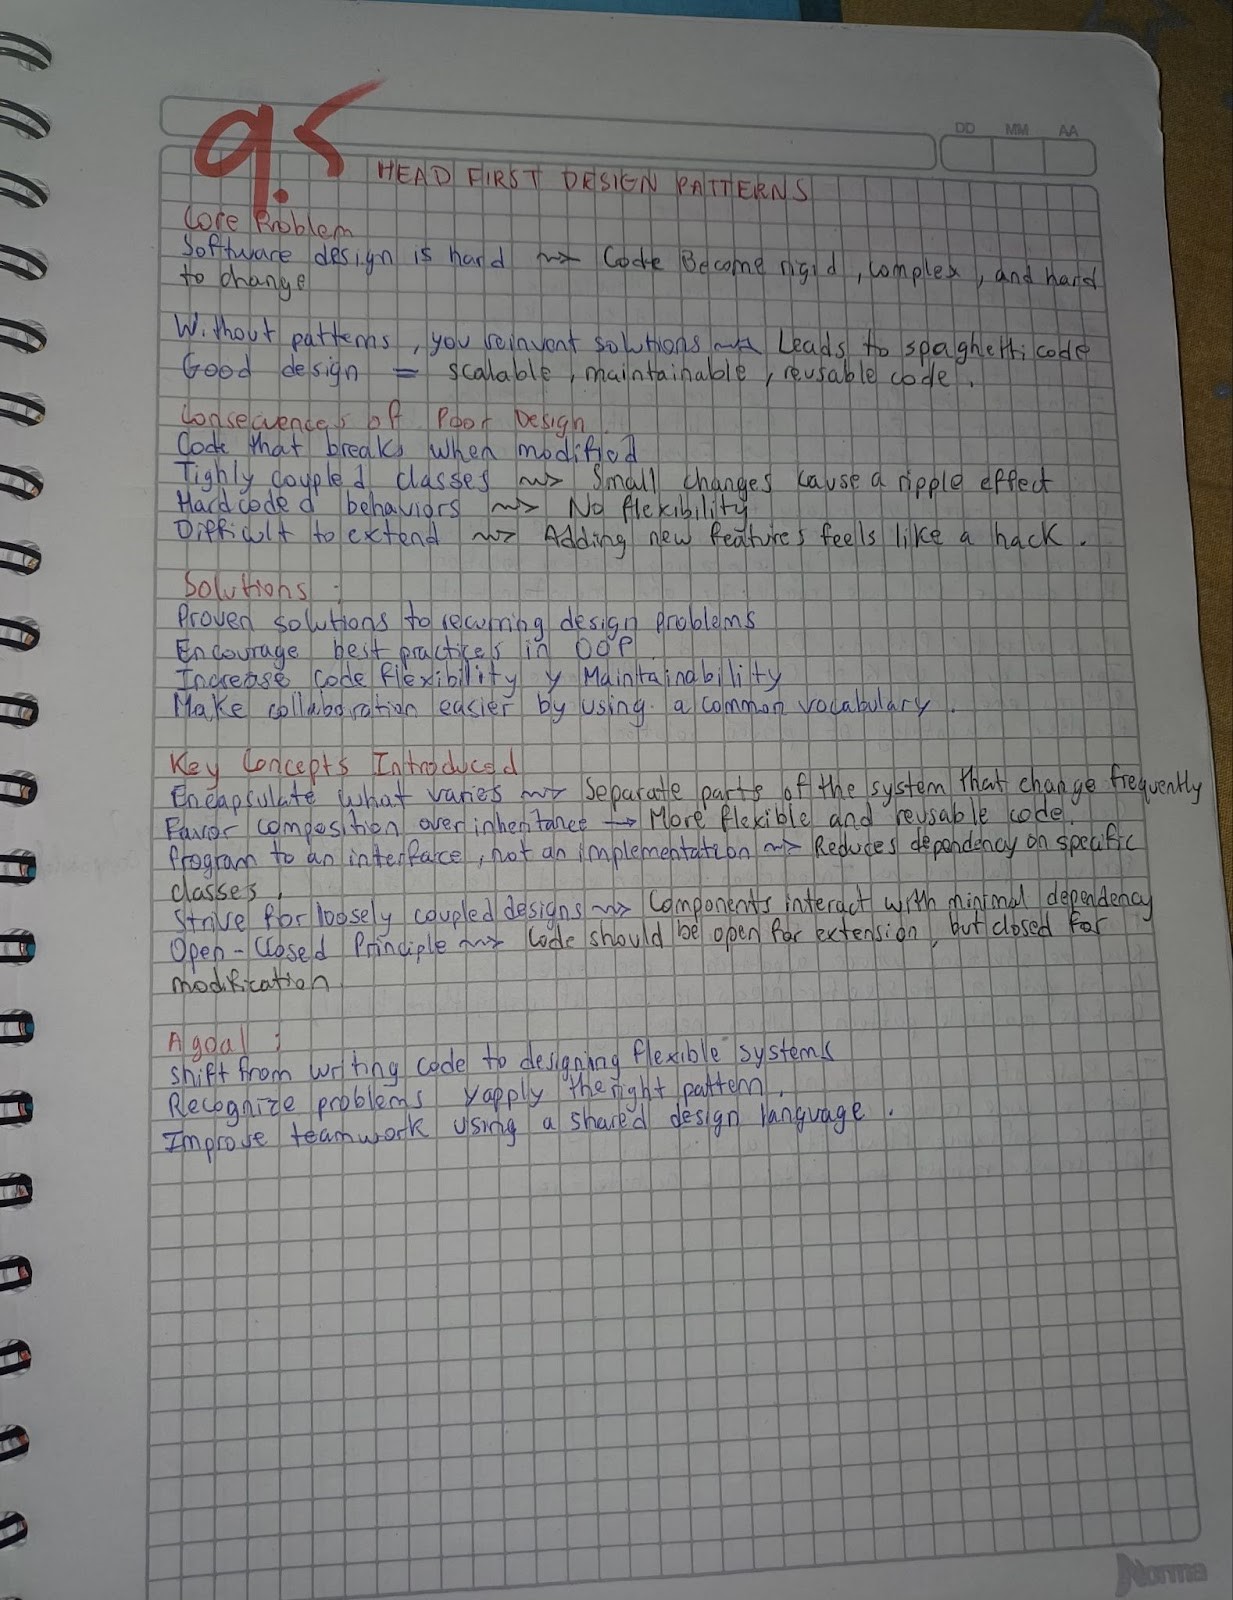 9.5
DD MM AA
HEAD FIRST DESIGN PATTERNS
Core Problem
Software design is hard ~> Code Become rigid, complex, and hard
to change
Without patterns, you reinvent solutions ~> Leads to spaghetti code
Good design = scalable, maintainable, reusable code.
Consecuences of Poor Design
Code that breaks when modified
Tighly coupled classes ~> Small changes cause a ripple effect
Hardcoded behaviors ~> No flexibility
Difficult to extend ~> Adding new features feels like a hack.
Solutions:
Proven solutions to recurring design problems
Encourage best practices in OOP
Increase code flexibility y Maintainability
Make collaboration easier by using a common vocabulary.
Key Concepts Introduced
Encapsulate what varies ~> Separate parts of the system that change frequently
Favor composition over inheritance → More flexible and reusable code.
Program to an interface, not an implementation ~> Reduces dependency on specific
classes.
Strive for loosely coupled designs ~> Components interact with minimal dependency
Open-Closed Principle ~> Code should be open for extension, but closed for
modification
A goal:
Shift from writing code to designing flexible systems
Recognize problems y apply the right pattern.
Improve teamwork using a shared design language.
Norma